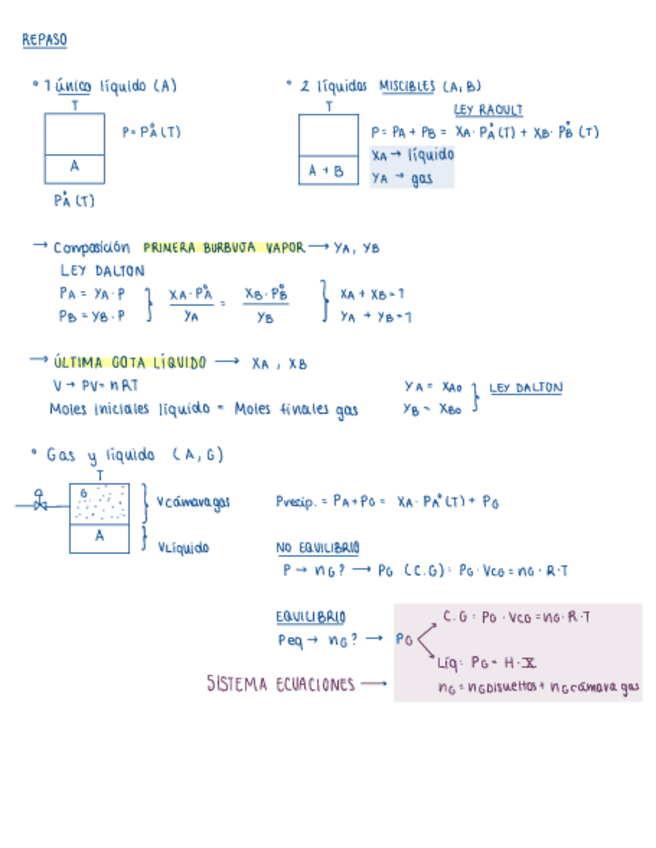 REPASO
° 1 único líquido (A)
T
P = P°A (T)
A
P°A (T)
° 2 líquidos MISCIBLES (A, B)
T
LEY RAOULT
P = PA + PB = XA · P°A (T) + XB · P°B (T)
A + B
XA → líquido
YA → gas
→ Composición PRIMERA BURBUJA VAPOR → YA, YB
LEY DALTON
PA = YA · P } XA · P°A / YA = XB · P°B / YB } XA + XB = 1
PB = YB · P } YA + YB = 1
→ ÚLTIMA GOTA LÍQUIDO → XA, XB
V → PV = nRT
Moles iniciales líquido = Moles finales gas
YA = XA0 } LEY DALTON
YB = XB0
° Gas y líquido (A, G)
T
G
A
} Vcámara gas
} Vlíquido
Precip. = PA + PG = XA · PA° (T) + PG
NO EQUILIBRIO
P → nG? → PG (C.G): PG · VCG = nG · R · T
EQUILIBRIO
Peq → nG? → PG
C.G: PG · VCG = nG · R · T
Líq: PG = H · X
SISTEMA ECUACIONES →
nG = nGDisueltos + nGcámara gas